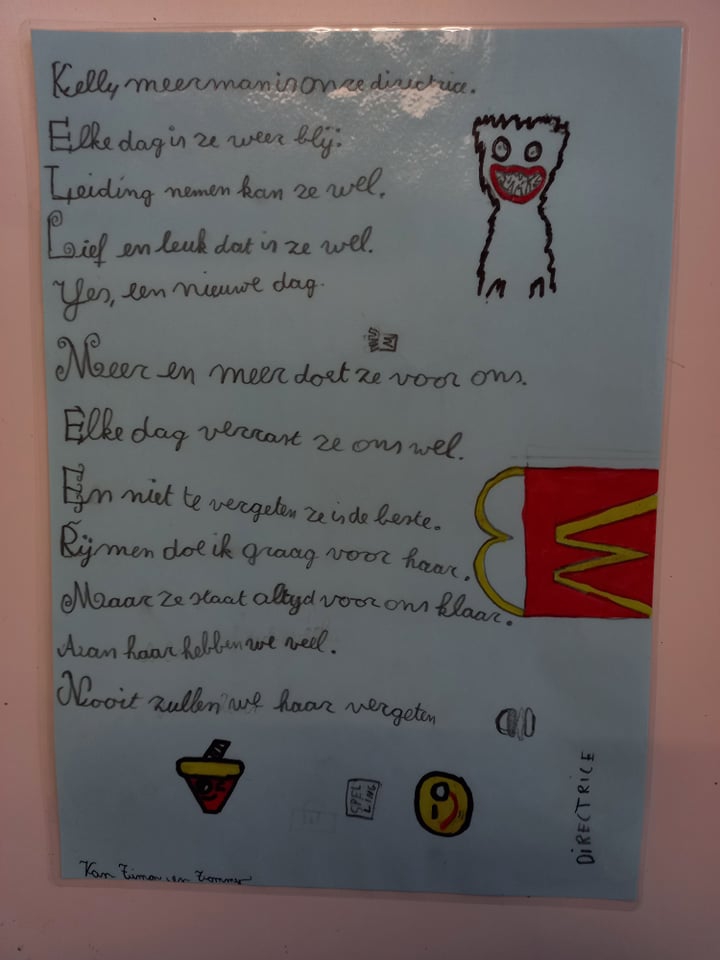 Kelly meerman is onze directrice.
Elke dag is ze weer blij.
Leiding nemen kan ze wel.
Lief en leuk dat is ze wel.
Yes, een nieuwe dag.
Meer en meer doet ze voor ons.
Elke dag verrast ze ons wel.
En niet te vergeten ze is de beste.
Rijmen doe ik graag voor haar.
Maar ze staat altyd voor ons klaar.
Aan haar hebben we veel.
Nooit zullen we haar vergeten
SPEL
LING
DIRECTRICE
Van Timon en